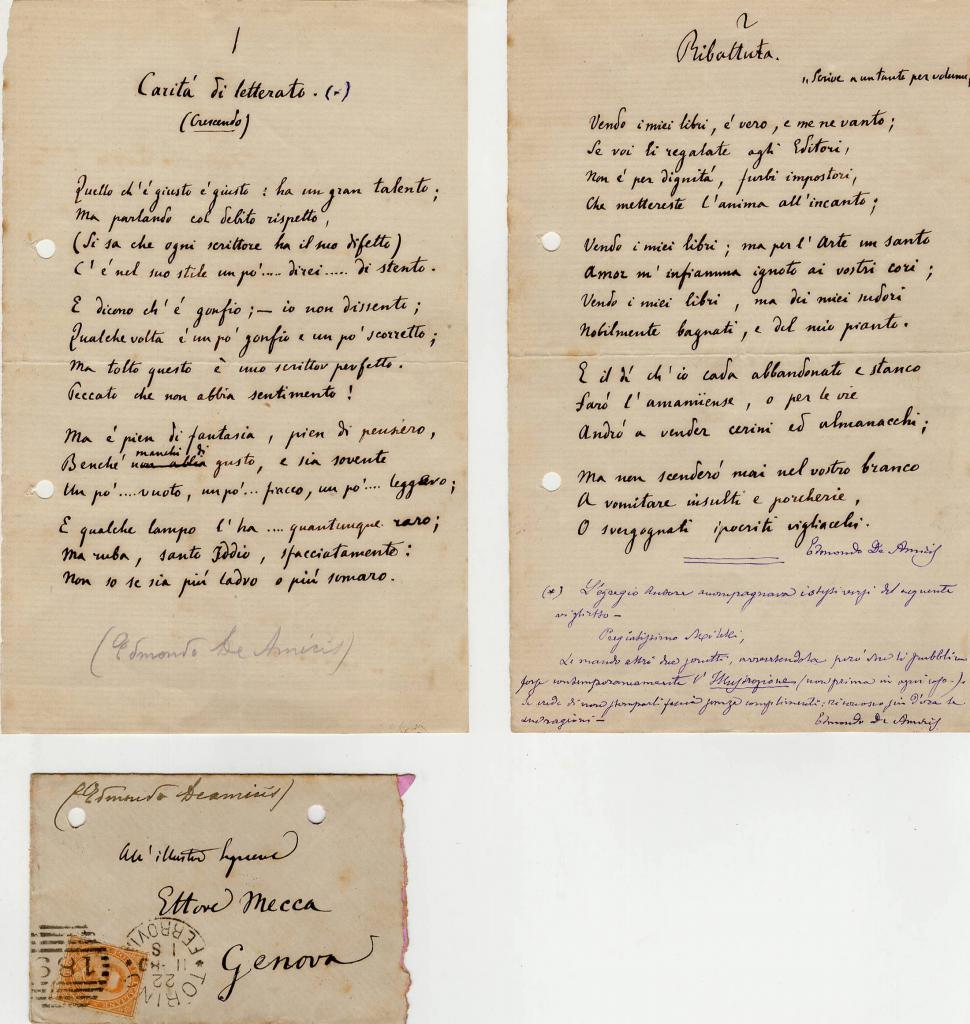 1
Carità di letterato. (*)
(Crescendo)
Quello ch'è giusto è giusto: ha un gran talento;
Ma parlando col debito rispetto,
(Si sa che ogni scrittore ha il suo difetto)
C'è nel suo stile un po'.... direi..... di stento.
E dicono ch'è gonfio; — io non dissento;
Qualche volta è un pò gonfio e un pò scorretto;
Ma tolto questo è uno scrittor perfetto.
Peccato che non abbia sentimento!
Ma è pien di fantasia, pien di pensiero,
manchi di
Benchè non abbia gusto, e sia sovente
Un pò....vuoto, un pò... fiacco, un pò.... leggero;
E qualche lampo l'ha .... quantunque raro;
Ma ruba, santo Iddio, sfacciatamente:
Non so se sia più ladro o più somaro.
(Edmondo De Amicis)
2
Ribattuta.
"Scrive a un tanto per volume
Vendo i miei libri, è vero, e me ne vanto;
Se voi li regalate agli Editori,
Non è per dignità, furbi impostori,
Che mettereste l'anima all'incanto;
Vendo i miei libri; ma per l'Arte un santo
Amor m'infiamma ignoto ai vostri cori;
Vendo i miei libri, ma dei miei sudori
Nobilmente bagnati, e del mio pianto.
E il dì ch'io cada abbandonato e stanco
Farò l'amanüense, o per le vie
Andrò a vender cerini ed almanacchi;
Ma non scenderò mai nel vostro branco
A vomitare insulti e porcherie,
O svergognati ipocriti vigliacchi.
Edmondo De Amicis
(*) L'egregio Autore accompagnava i stessi versi del seguente
viglietto —
Pregiatissimo
Le mando altri due sonetti, avvertendola però che li pubblica
forse contemporaneamente l'Illustrazione (non prima in ogni caso.)
Se crede di non stamparli faccia senza complimenti: riconosco fin d'ora le
sue ragioni —
Edmondo De Amicis
(Edmondo Deamicis)
All'illustre Signore
Ettore Mecca
Genova
TORINO FERROVIA
22
11
1 S
189